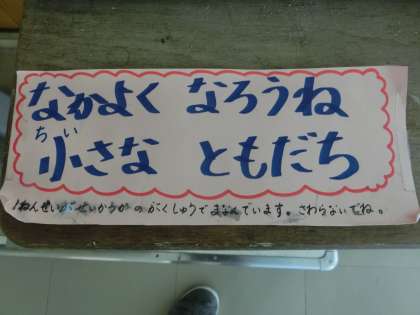 なかよく なろうね
ちい
小さな ともだち
1ねんせいがせいかつかのがくしゅうでまなんでいます。さわらないでね。